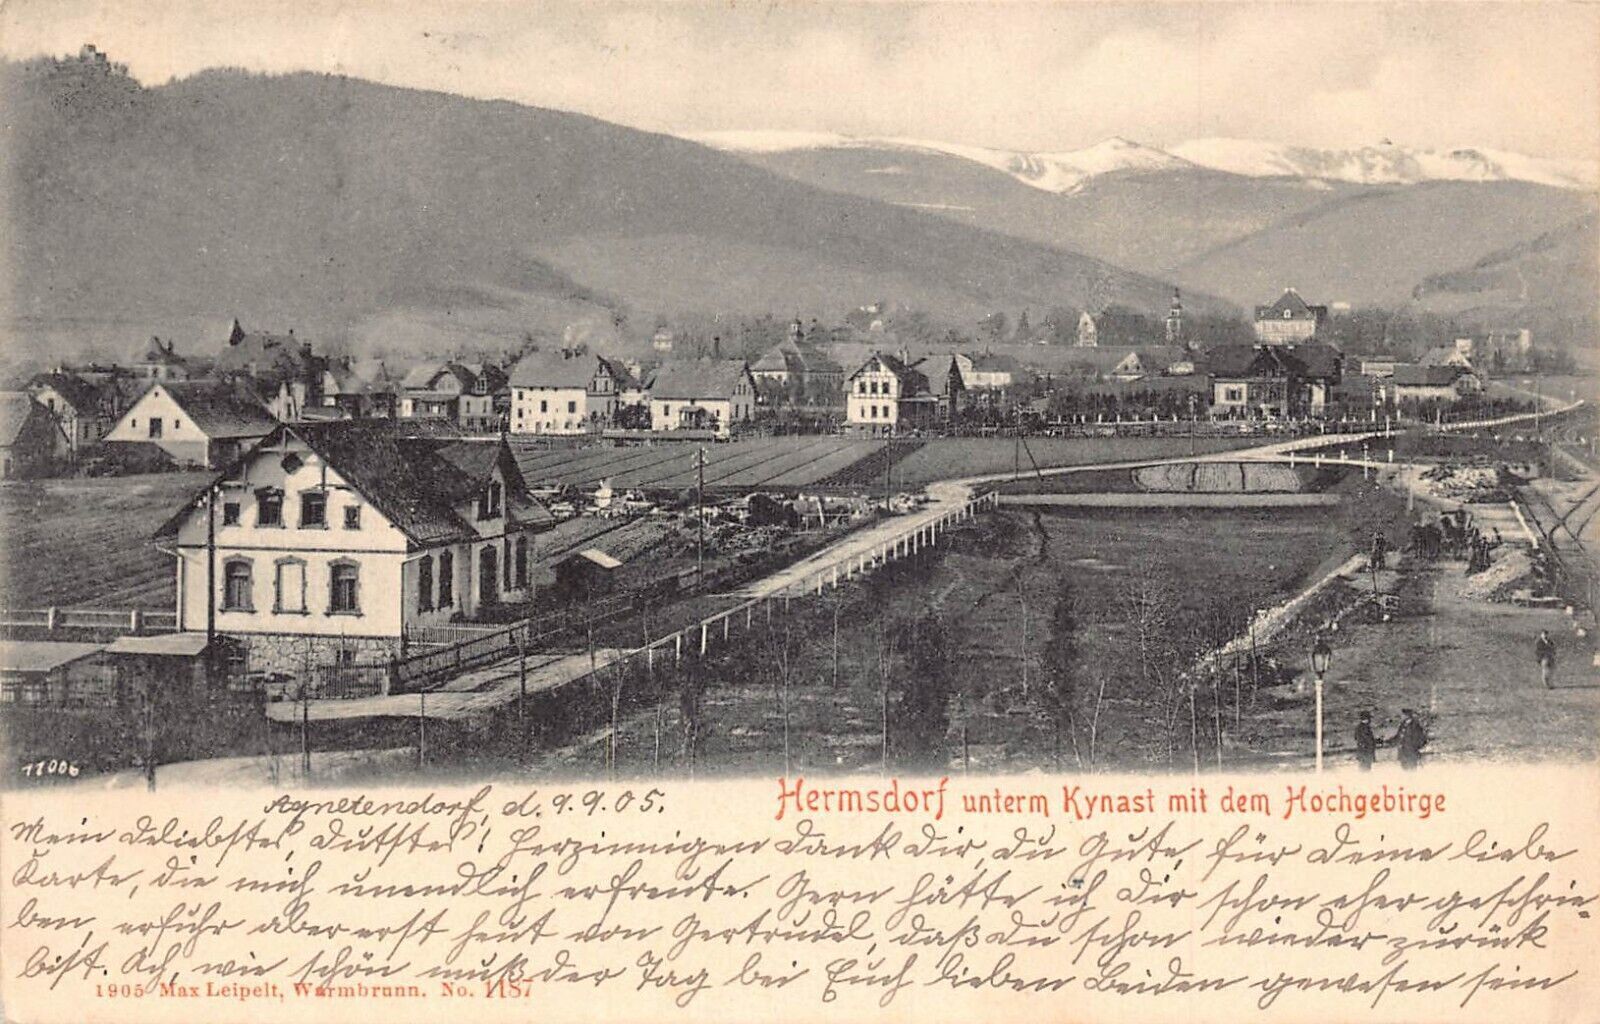 11006
Hermsdorf unterm Kynast mit dem Hochgebirge
Agnetendorf, d. 9.9.05.
Mein Geliebstes, Gutstes! Herzinnigen Dank Dir, Du Gute, für Deine liebe
Karte, die mich unendlich erfreute. Gern hätte ich Dir schon eher geschrie-
ben, erfuhr aber erst heut von Gertrudel, daß Du schon wieder zurück
bist. Ach, wie schön muß der Tag bei Euch lieben Beiden gewesen sein
1905 Max Leipelt, Warmbrunn. No. 1187